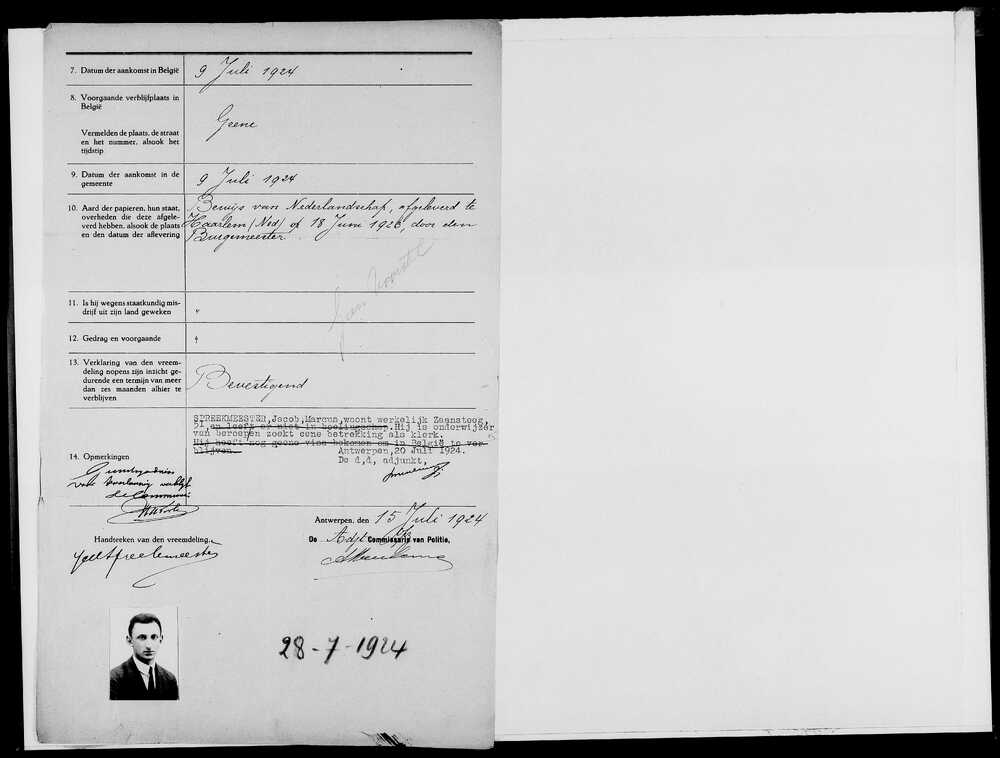 7. Datum der aankomst in België
9 Juli 1924
8. Voorgaande verblijfplaats in
België
Geene
Vermelden de plaats, de straat
en het nummer, alsook het
tijdstip
9. Datum der aankomst in de
gemeente
9 Juli 1924
10. Aard der papieren, hun staat,
overheden die deze afgele-
verd hebben, alsook de plaats
en den datum der aflevering
Bewijs van Nederlandschap, afgeleverd te
Haarlem (Ned) op 18 Juni 1923, door den
Burgemeester
11. Is hij wegens staatkundig mis-
drijf uit zijn land geweken
"
12. Gedrag en voorgaande
13. Verklaring van den vreem-
deling nopens zijn inzicht ge-
durende een termijn van meer
dan zes maanden alhier te
verblijven
Bevestigend
14. Opmerkingen
SPREEKMEESTER, Jacob, Marcus, woont werkelijk Zaanstoog.
51, en leeft er niet in boelingschap. Hij is onderwijzer
van beroepen zoekt eene betrekking als klerk.
Hij heeft nog geene visa bekomen om in België te ver-
blijven.
Antwerpen, 20 Juli 1924.
De d,d, adjunkt,
Antwerpen, den 15 Juli 1924
Handteeken van den vreemdeling,
De Adjt Commissaris van Politie,
28-7-1924